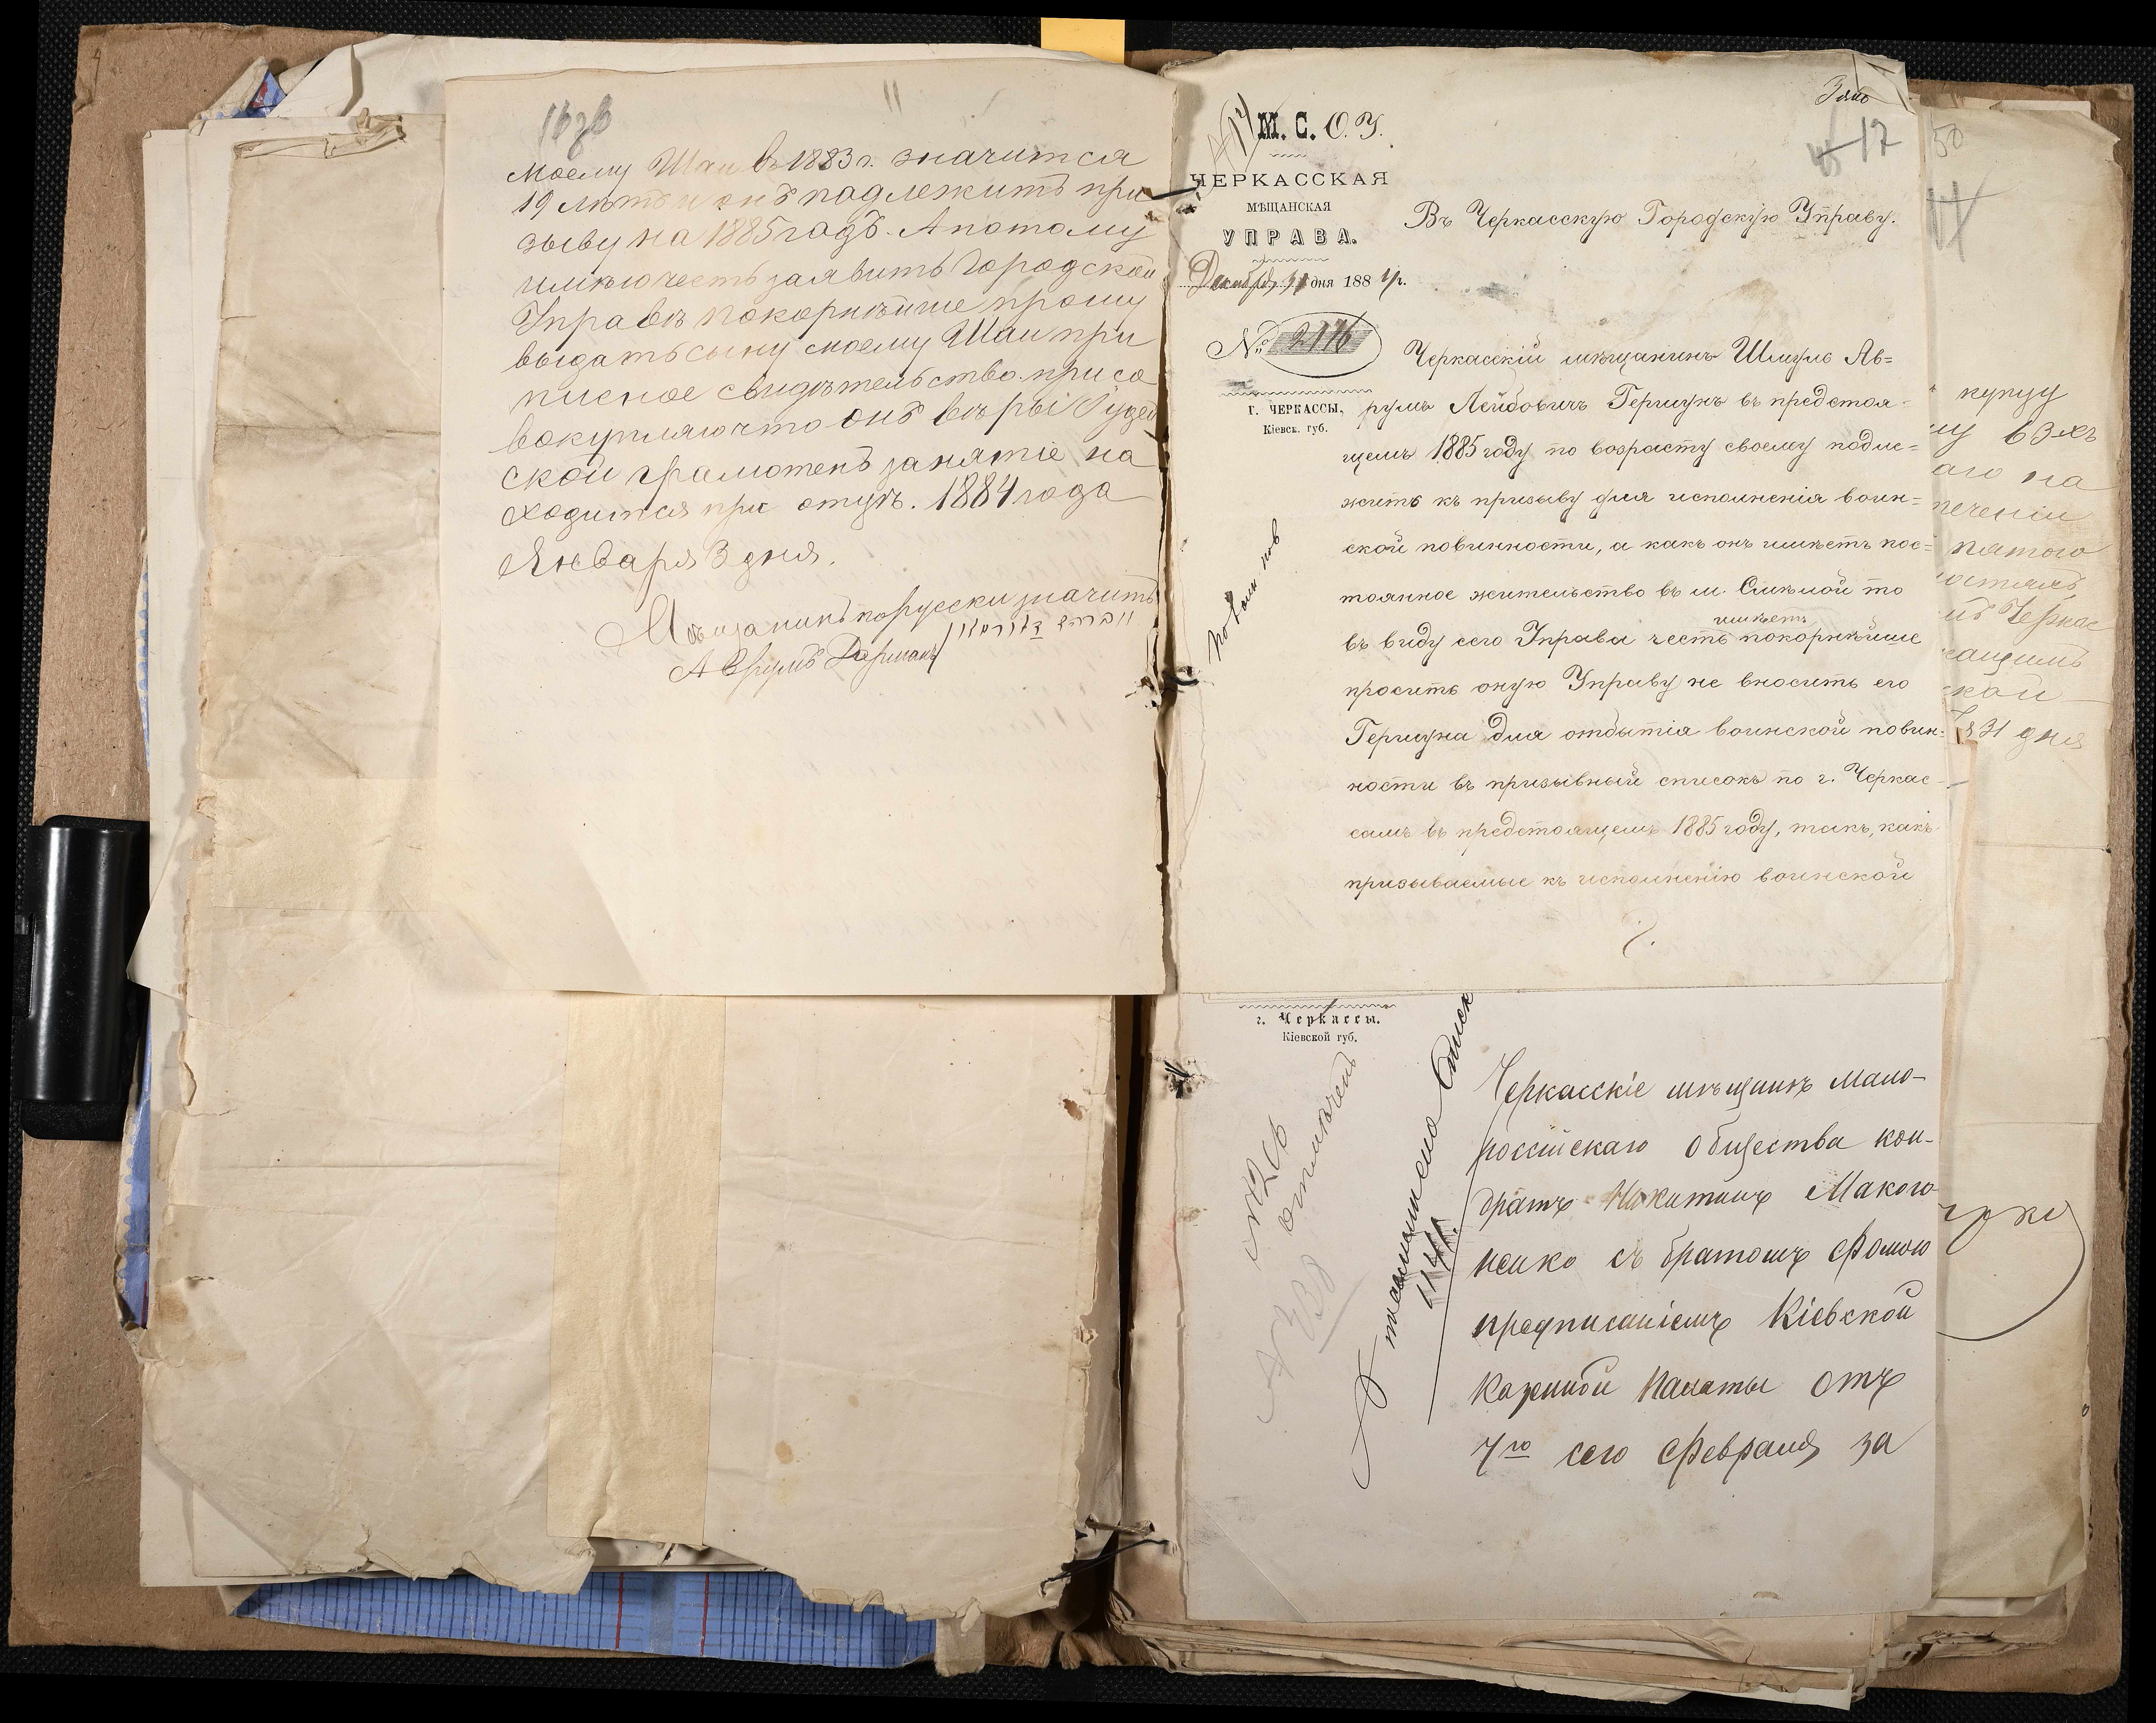 16 об
моему Шаи въ 1883 г. значится
19 лѣтъ и онъ подлежитъ при
зыву на 1885 годъ. А потому
имѣю честь заявить Городской
Управѣ покорнѣйше прошу
выдать сыну моему Шаи при
писное свидѣтельство. при со
вокупляю что онъ вѣры Іудей
ской грамотенъ занятіе на
ходится при отцѣ. 1884 года
Января 3 дня.
Мѣщанинъ порусски значитъ
Аврумъ
3 янв
17
М. С. О. У.
ЧЕРКАССКАЯ
МѢЩАНСКАЯ
УПРАВА.
Декабря 31 дня 1884 г.
№ 2116
г. ЧЕРКАССЫ,
Кіевск. губ.
Въ Черкасскую Городскую Управу.
Черкасскій мѣщанинъ Шмуль Ав=
румъ Лейбовичъ Гершунъ въ предстоя=
щемъ 1885 году по возрасту своему подле=
житъ къ призыву для исполненія воин=
ской повинности, а какъ онъ имѣетъ пос=
тоянное жительство въ м. Смѣлой то
имѣетъ
въ виду сего Управа честь покорнѣйше
просить оную Управу не вносить его
Гершуна для отбытія воинской повин=
ности въ призывный списокъ по г. Черкас-
самъ въ предстоящемъ 1885 году, такъ, какъ
призываемые къ исполненію воинской
г. Черкассы.
Кіевской губ.
отмѣченъ
Черкасскіе мѣщане мало-
россійскаго общества кон-
дратъ Никитинъ Макого-
ненко съ братомъ Фомою
предписаніемъ Кіевской
Казенной Палаты отъ
7го сего Февраля за
50
купцу
аго на
теченіи
пятого
Черкас
ской
31 дня